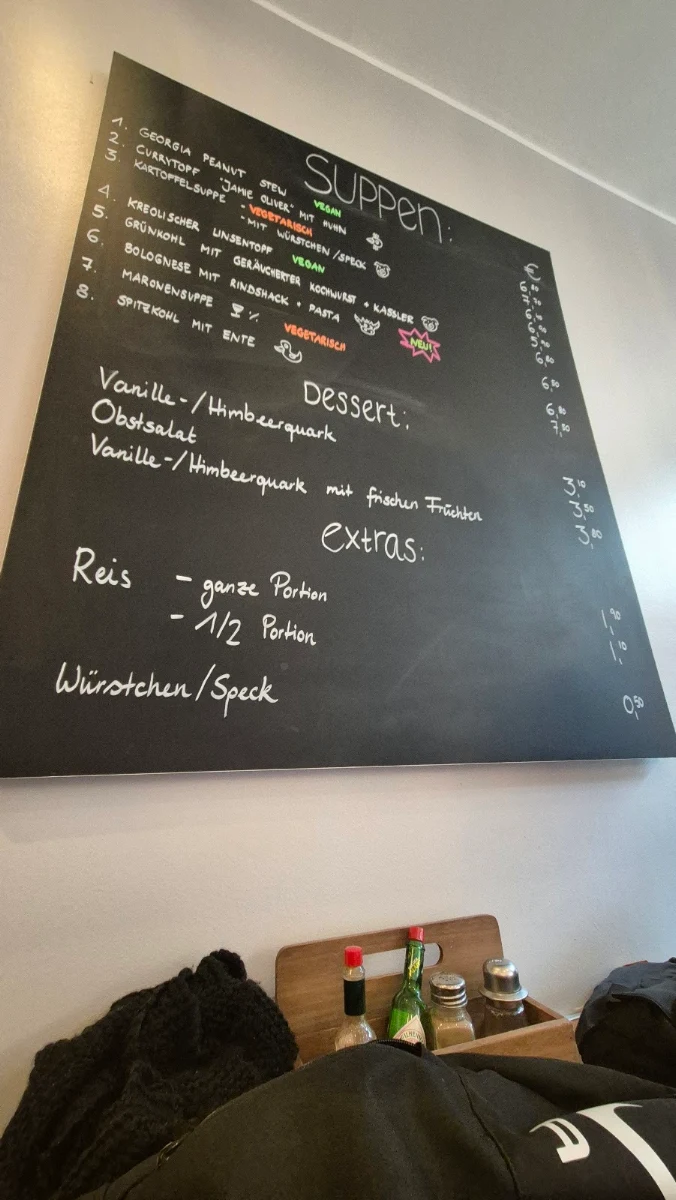 Suppen:
€
1. GEORGIA PEANUT STEW VEGAN
2. CURRYTOPF "JAMIE OLIVER" MIT HUHN
3. KARTOFFELSUPPE - VEGETARISCH
- MIT WÜRSTCHEN/SPECK
4. KREOLISCHER LINSENTOPF VEGAN
5. GRÜNKOHL MIT GERÄUCHERTER KOCHWURST + KASSLER
6. BOLOGNESE MIT RINDSHACK + PASTA 6,80
7. MARONENSUPPE VEGETARISCH NEU! 6,80
8. SPITZKOHL MIT ENTE 7,50
Dessert:
Vanille-/Himbeerquark 3,10
Obstsalat 3,50
Vanille-/Himbeerquark mit frischen Früchten 3,80
extras:
Reis - ganze Portion 1,90
- 1/2 Portion 1,10
Würstchen/Speck 0,50